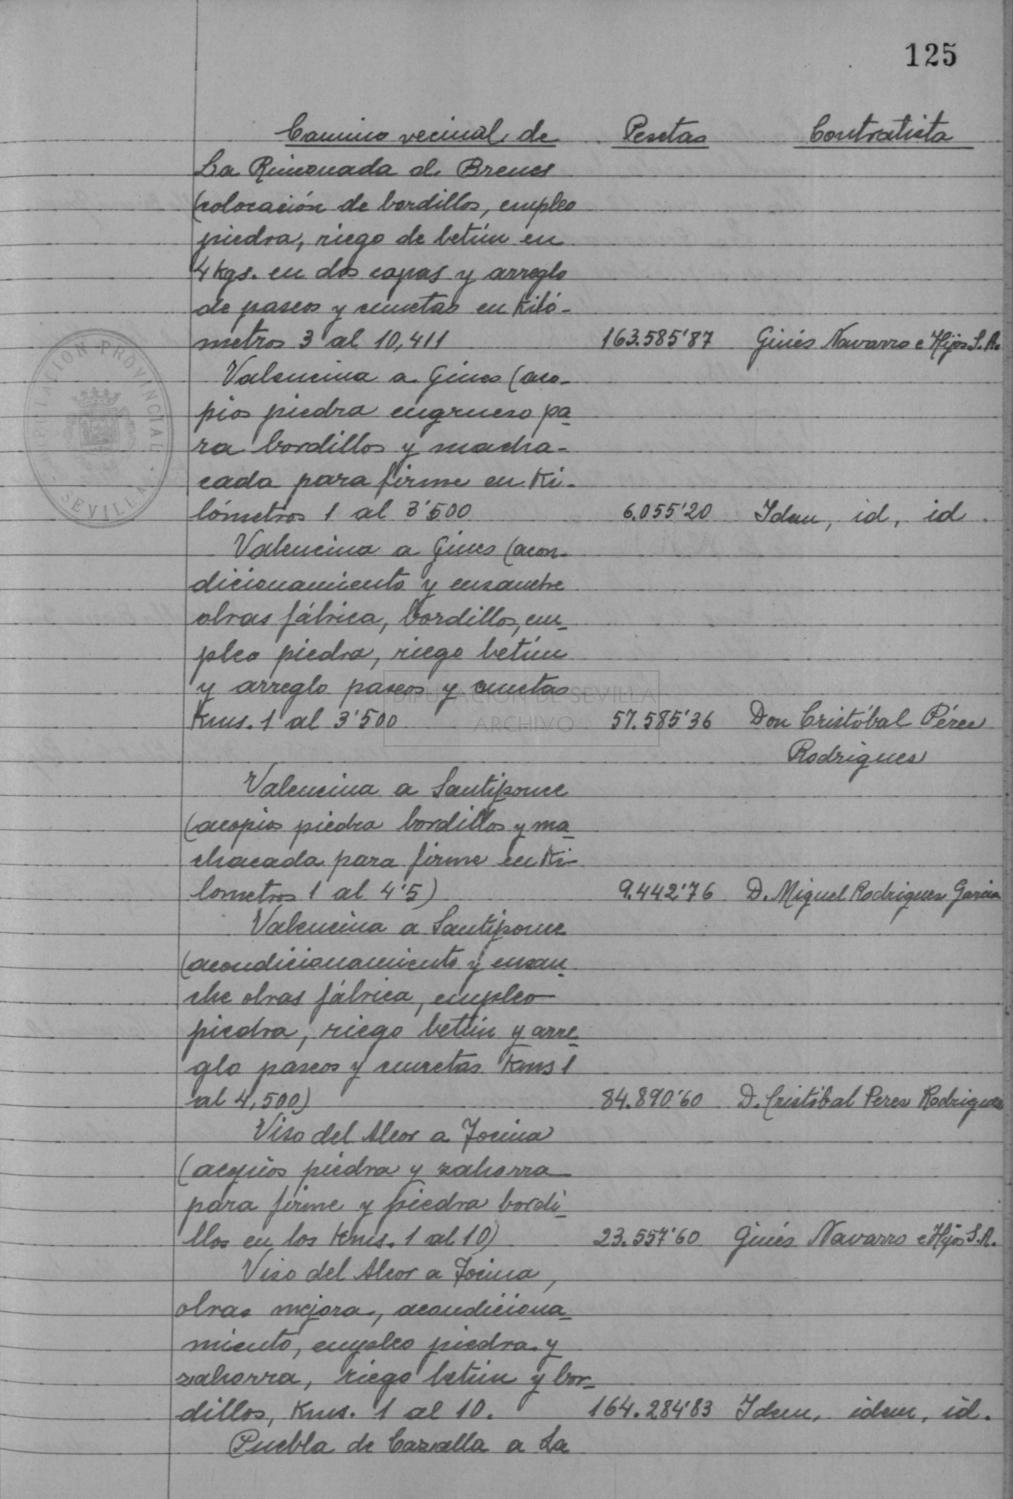 125
Camino vecinal de Pesetas Contratista
La Rinconada a Brenes
(colocación de bordillos, empleo
piedra, riego de betún en
4 kgs. en dos capas y arreglo
de paseos y cunetas en kiló-
metros 3 al 10,411 163.585'87 Ginés Navarro e Hijos S.A.
Valencina a Gines (aco-
pios piedra engrueso pa-
ra bordillos y macha-
cada para firme en ki-
lómetros 1 al 3'500 6.055'20 Idem, id, id
Valencina a Gines (acon-
dicionamiento y ensanche
obras fábrica, bordillos, em-
pleo piedra, riego betún
y arreglo paseos y cunetas
Kms. 1 al 3'500 57.585'36 Don Cristóbal Pérez
Rodriguez
Valencina a Santiponce
(acopios piedra bordillos y ma-
chacada para firme en ki-
lometros 1 al 4'5) 9.442'76 D. Miguel Rodriguez Garcia
Valencina a Santiponce
(acondicionamiento y ensan-
che obras fábrica, empleo
piedra, riego betún y arre-
glo paseos y cunetas Kms 1
al 4,500) 84.890'60 D. Cristóbal Perez Rodriguez
Viso del Alcor a Tocina
(acopios piedra y zahorra
para firme y piedra bordi-
llos en los Kms. 1 al 10) 23.557'60 Ginés Navarro e Hijos S.A.
Viso del Alcor a Tocina,
obras mejora, acondiciona-
miento, empleo piedra y
zahorra, riego betún y bor-
dillos, Kms. 1 al 10. 164.284'83 Idem, idem, id.
Puebla de Cazalla a La
DIPUTACION PROVINCIAL - SEVILLA -
DIPUTACION DE SEVILLA
ARCHIVO